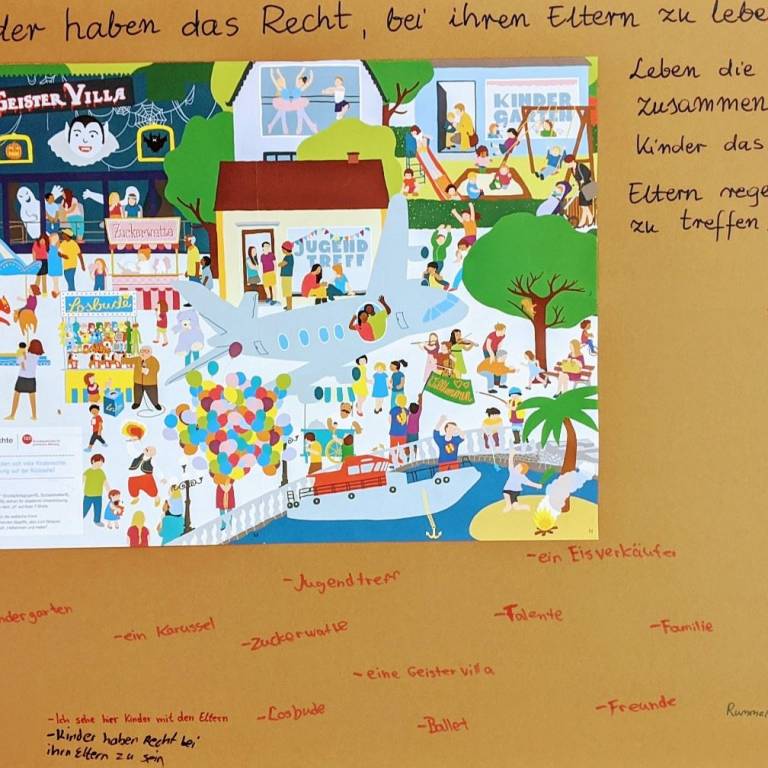 der haben das Recht, bei ihren Eltern zu lebe
Leben die
zusammen
Kinder das
Eltern rege
zu treffen
GEISTER VILLA
KINDER
GARTEN
Zuckerwatta
JUGEND
TREFF
Losbude
Willkommen
chte
-ein Eisverkäufer
-Jugendtreff
ndergarten
-ein Karussel
-Zuckerwatte
-Talente
-Familie
-eine Geistervilla
-Ich sehe hier Kinder mit den Eltern
-Losbude
-Ballet
-Freunde
Rummel
-Kinder haben Recht bei
ihrn Eltern zu sein